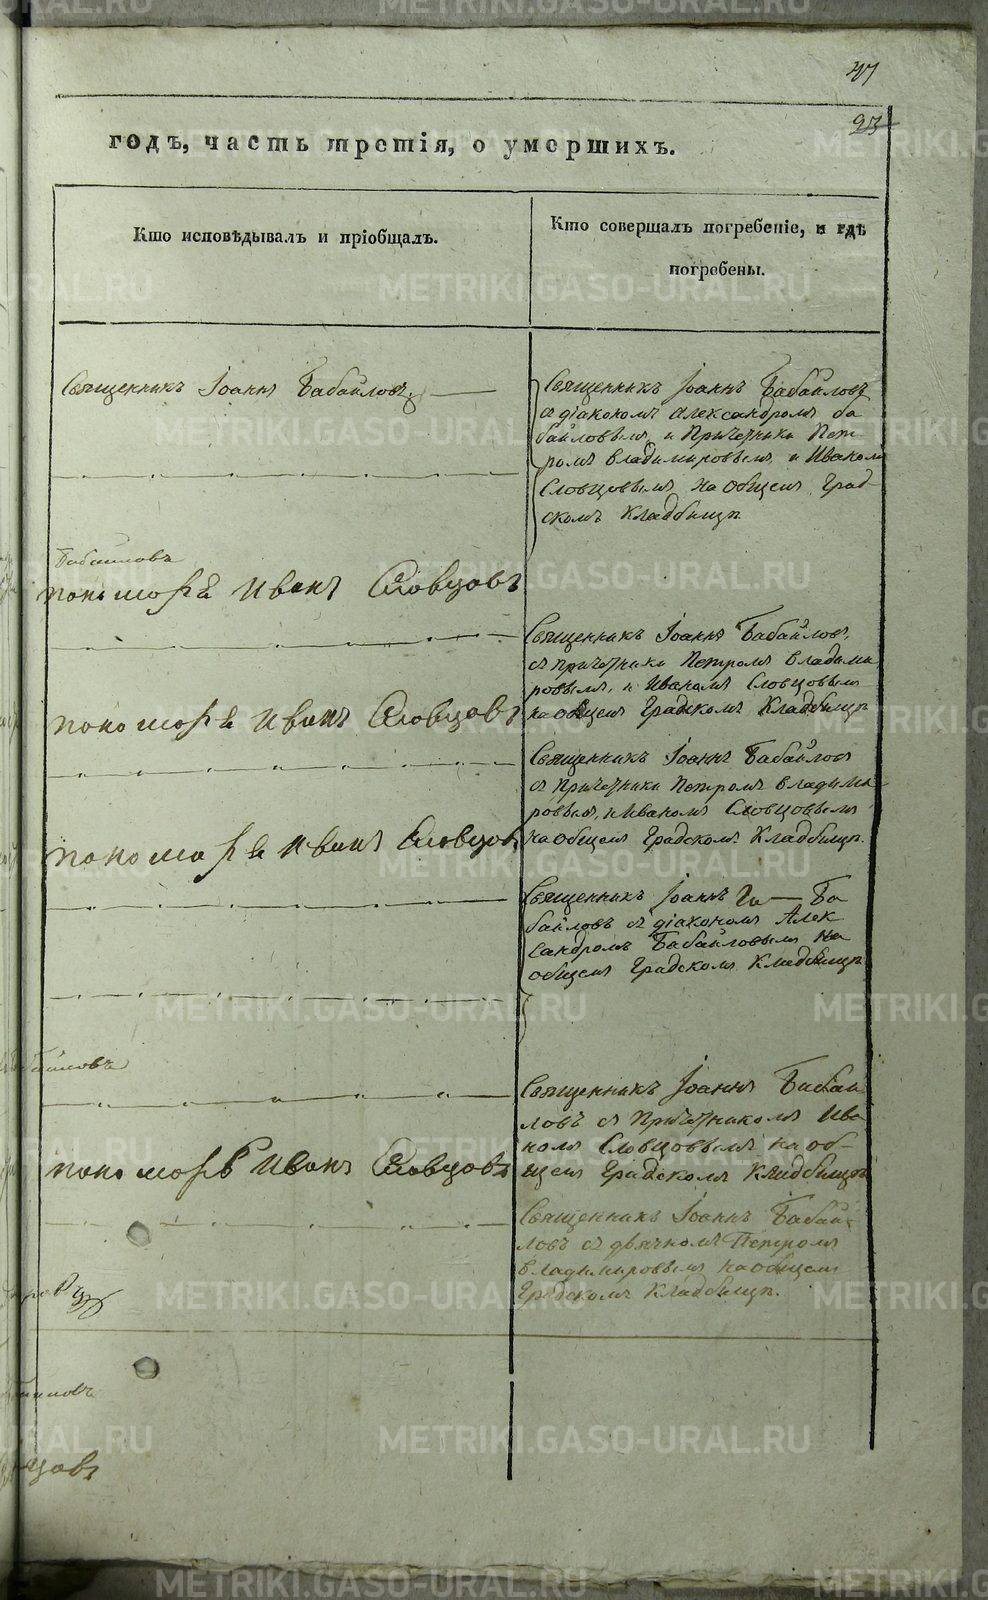 47
23
годъ, часть третія, о умершихъ.
Кто исповѣдывалъ и пріобщалъ.
Кто совершалъ погребеніе, и гдѣ
погребены.
Священникъ Іоаннъ Бабайловъ
Священникъ Іоаннъ Бабайловъ
съ діакономъ Александромъ Ба
байловымъ и Причетники Пет
ромъ Владимировымъ и Иваномъ
Словцовымъ на общемъ Град
скомъ Кладбищѣ
Бабаиловъ
пономорь Иванъ Словцовъ
Священникъ Іоаннъ Бабайловъ,
съ причетники Петромъ Владими
ровымъ, и Иваномъ Словцовымъ
на общемъ Градскомъ Кладбищѣ
пономорь Иванъ Словцовъ
Священникъ Іоаннъ Бабайловъ
съ Причетники Петромъ Владыми
ровымъ, и Иваномъ Словцовымъ
на общемъ Градскомъ Кладбищѣ.
пономорь Иванъ Словцовъ
Священникъ Іоаннъ Ба
байловъ съ діакономъ Алек
сандромъ Бабайловымъ на
общемъ Градскомъ Кладбищѣ
байловъ
Священникъ Іоаннъ Бабай
ловъ съ Причетникомъ Ива
номъ Словцовымъ на об
щемъ Градскомъ Кладбищѣ
пономорь Иванъ Словцовъ
Священникъ Іоаннъ Бабай
ловъ съ дьячкомъ Петромъ
Владимировымъ на общемъ
Градскомъ Кладбищѣ.
METRIKI.GASO-URAL.RU